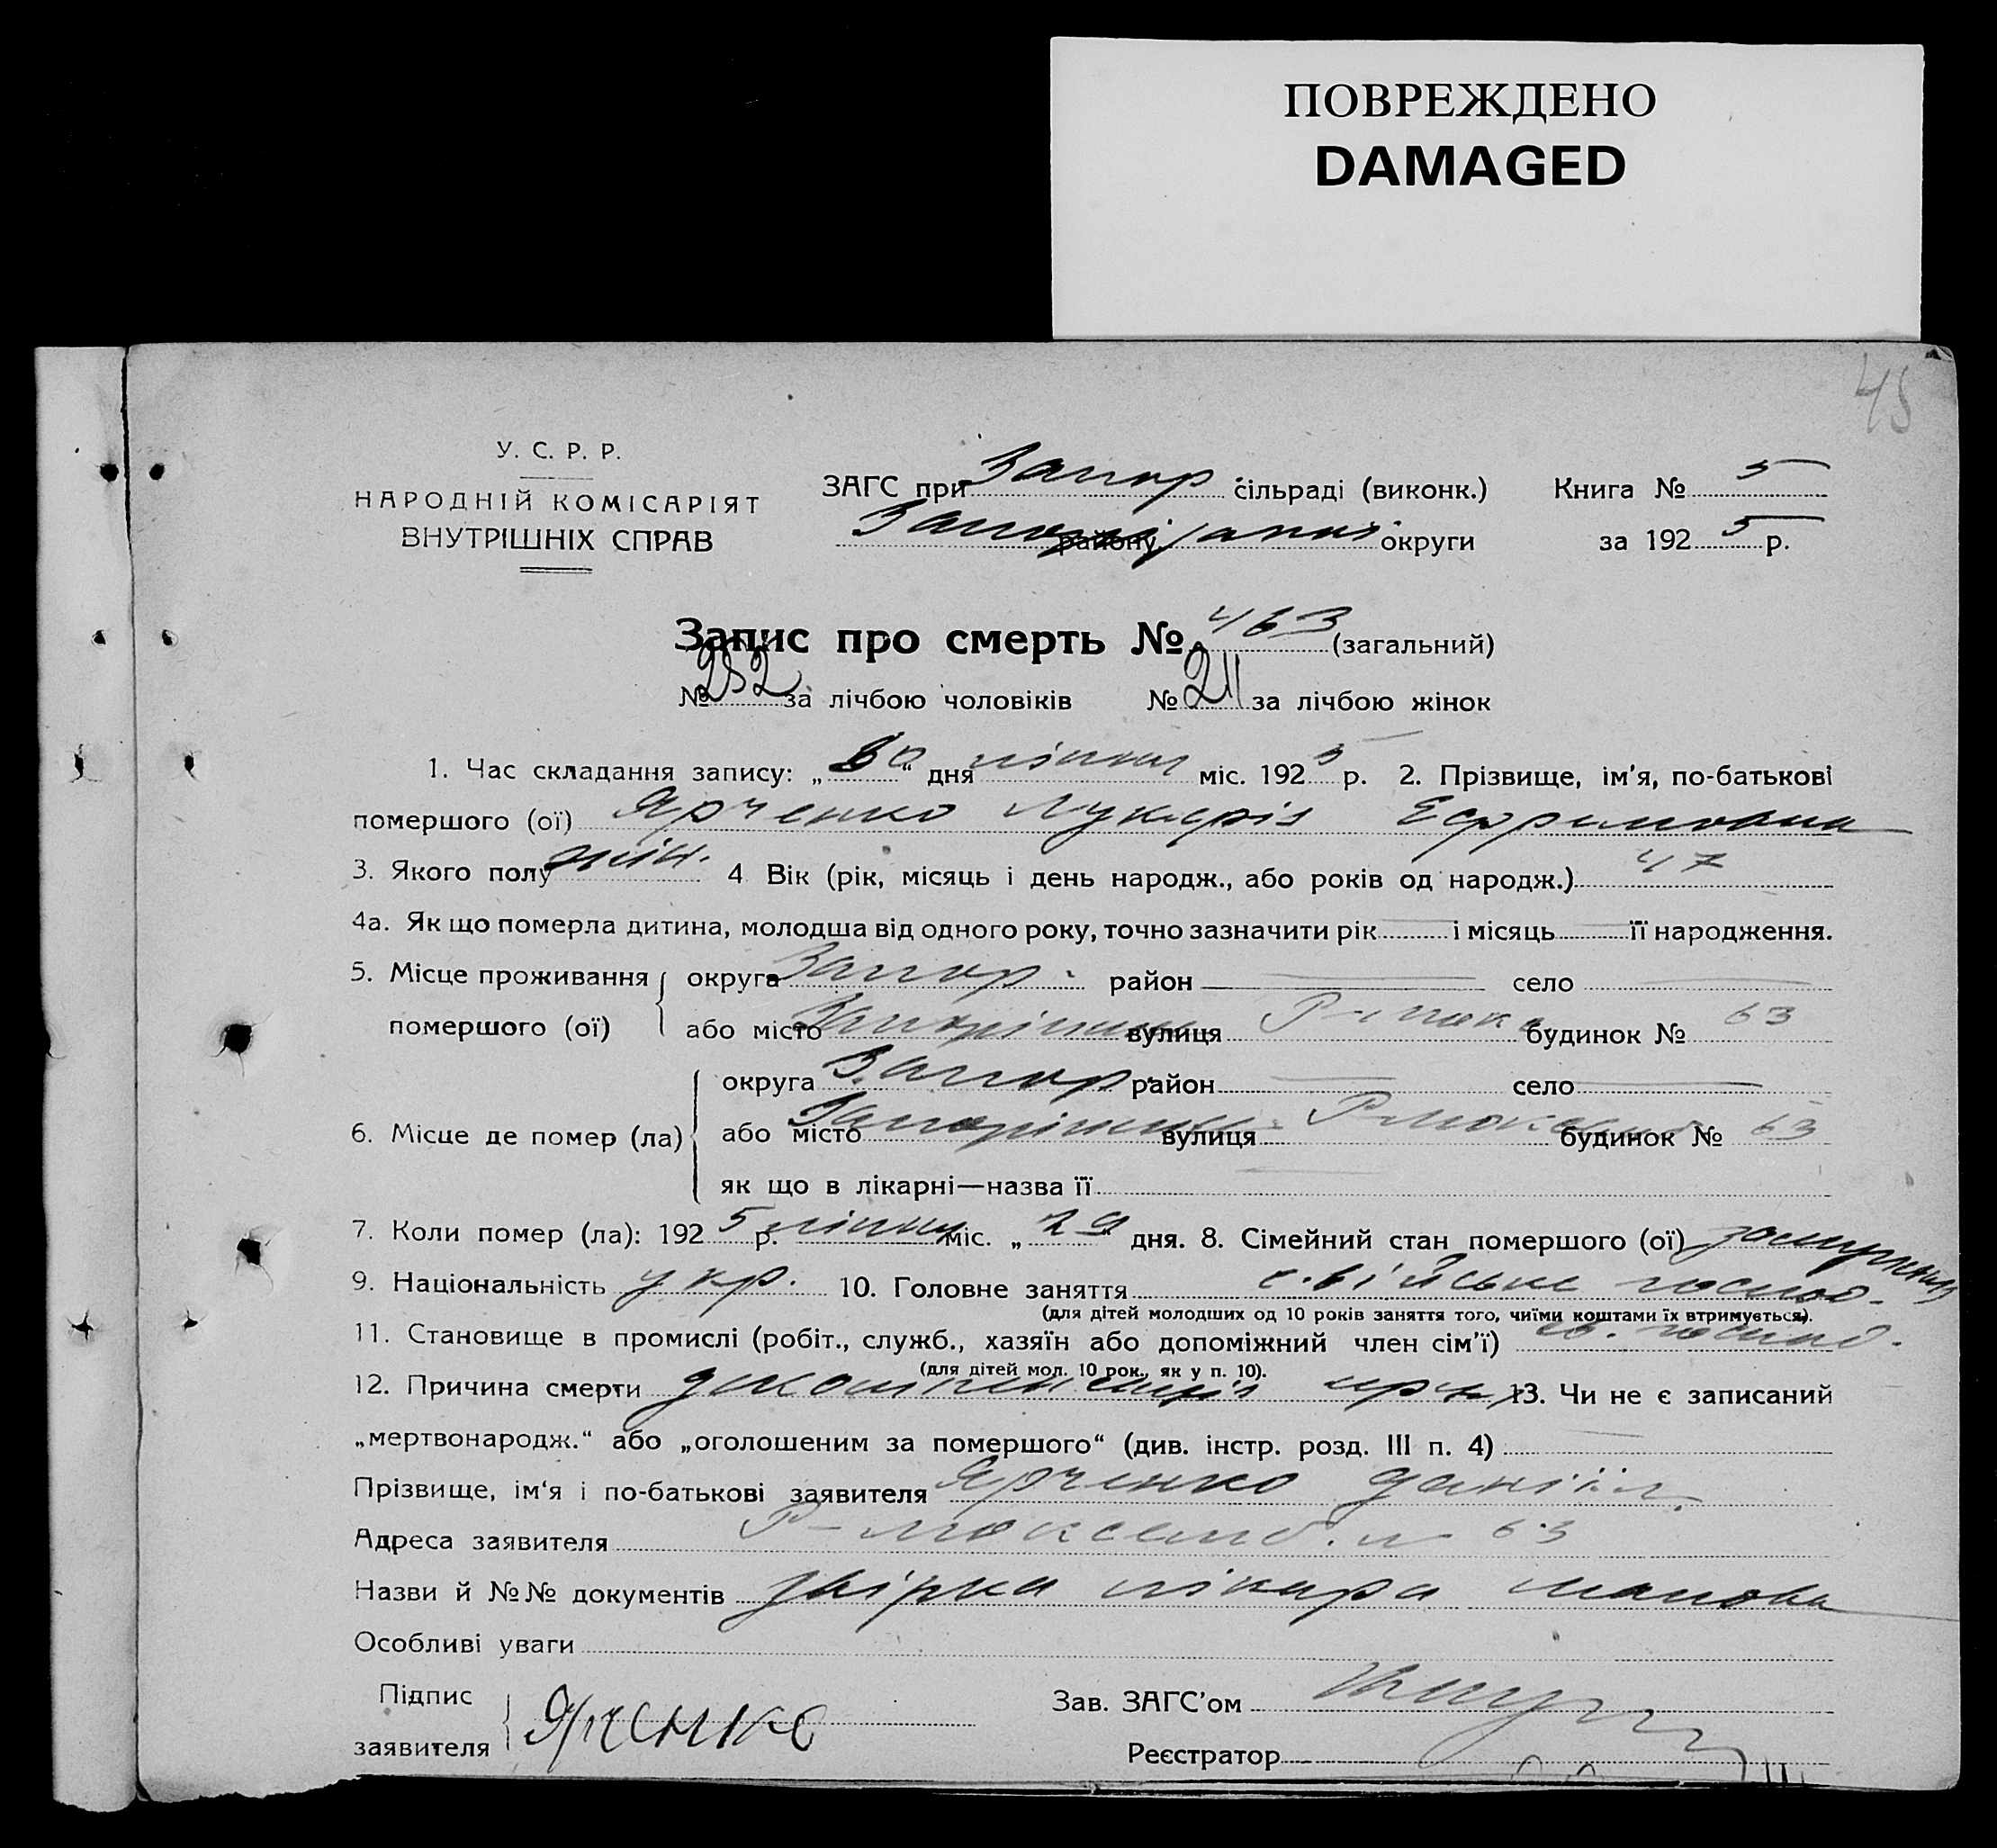 ПОВРЕЖДЕНО
DAMAGED
45
У. С. Р. Р.
НАРОДНІЙ КОМІСАРІЯТ
ВНУТРІШНІХ СПРАВ
ЗАГС при Запор сільраді (виконк.) Книга № 5
району округи за 1925 р.
Запис про смерть № 463 (загальний)
№ 252 за лічбою чоловіків № 211 за лічбою жінок
1. Час складання запису: „30“ дня липня міс. 1925 р. 2. Прізвище, ім'я, по-батькові
помершого (ої) Ярченко Лукерія Ефримовна
3. Якого полу жін. 4 Вік (рік, місяць і день народж., або років од народж.) 47
4а. Як що померла дитина, молодша від одного року, точно зазначити рік — і місяць — її народження.
5. Місце проживання округа Запор. район — село —
помершого (ої) або місто Запоріжжя вулиця будинок № 63
округа Запор. район — село —
6. Місце де помер (ла) або місто Запоріжжя вулиця будинок № 63
як що в лікарні—назва її —
7. Коли помер (ла): 1925 р. липня міс. „29“ дня. 8. Сімейний стан помершого (ої) замужня
9. Національність укр. 10. Головне заняття господ.
(для дітей молодших од 10 років заняття того, чиїми коштами їх втримується).
11. Становище в промислі (робіт., служб., хазяїн або допоміжний член сім'ї) господ.
(для дітей мол. 10 рок., як у п. 10).
12. Причина смерти декомпенсація 13. Чи не є записаний
„мертвонародж.“ або „оголошеним за помершого“ (див. інстр. розд. III п. 4) —
Прізвище, ім'я і по-батькові заявителя Ярченко Даніїл.
Адреса заявителя 63
Назви й №№ документів лікаря
Особливі уваги
Підпис
заявителя Ярченко
Зав. ЗАГС'ом
Реєстратор